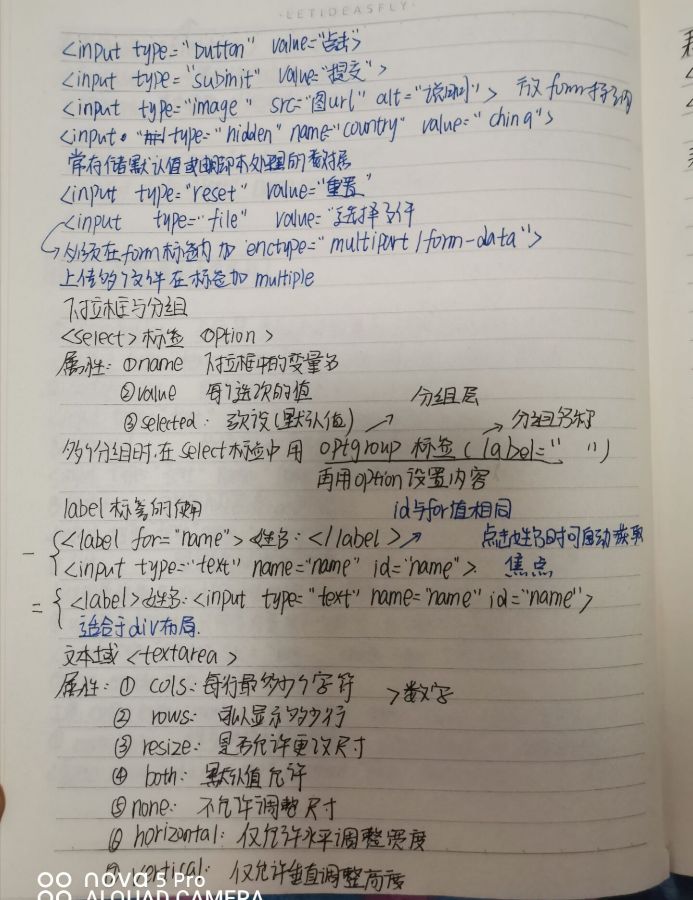 ·LETIDEASFLY·
<input type="button" value="点击>
<input type="submit" value="提交">
<input type="image" src="图url" alt="说明"> form
<input type="hidden" name="country" value="china">
常存储默认值或
<input type="reset" value="重置"
<input type="file" value="选择文件
必须在form标签内加 enctype="multipart/form-data">
上传多个文件在标签加 multiple
下拉框与分组
<select>标签 <option>
属性: ①name 下拉框中的变量名
②value 每个选项的值
分组层
③selected: (默认值)
分组名称
多个分组时,在select标签中用 optgroup 标签(label=" ")
再用option设置内容
label标签的使用
id与for值相同
一 <label for="name">姓名:</label>
点击姓名时可自动获取
<input type="text" name="name" id="name">
焦点
二 <label>姓名:<input type="text" name="name" id="name">
适合于div布局.
文本域 <textarea>
属性: ① cols: 每行最多少个字符 >数字
② rows: 可以显示多少行
③ resize: 是否允许更改尺寸
④ both: 默认值允许
⑤ none: 不允许调整尺寸
⑥ horizontal: 仅允许水平调整宽度
vertical: 仅允许垂直调整高度
nova 5 Pro
AI QUAD CAMERA